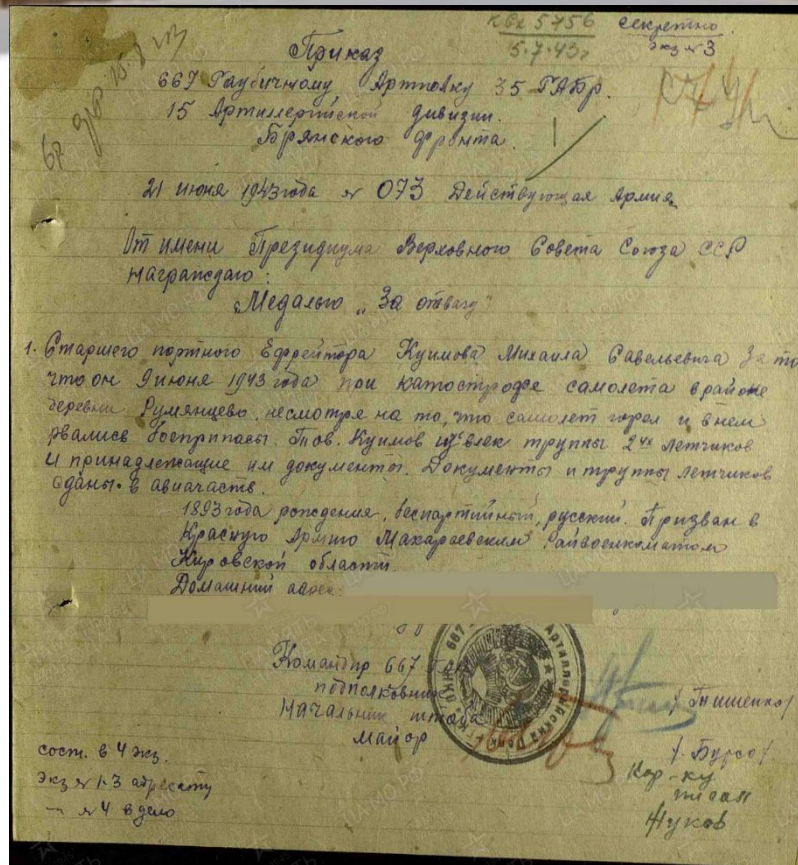 к вх 5756 секретно.
5.7.43г экз № 3
Приказ
667 Гаубичному Артполку 35 ГАБр.
15 Артиллерийской дивизии.
Брянского фронта.
21 июня 1943 года № 073 Действующая Армия
От имени Президиума Верховного Совета Союза ССР
награждаю:
Медалью „За отвагу"
1. Старшего портного Ефрейтора Куимова Михаила Савельевича За то
что он 9 июня 1943 года при катострофе самолета в районе
деревни Румянцево, несмотря на то, что самолет горел и в нем
рвались боеприпасы. Тов. Куимов извлек труппы 2ух летчиков
и принадлежащие им документы. Документы и труппы летчиков
сданы в авиачасть.
1893 года рождения, беспартийный, русский. Призван в
Красную Армию Макараевским Райвоенкоматом
Кировской области.
Домашний адрес:
Командир 667
подполковник
/Тишенко/
Начальник штаба
майор
/Бурсо/.
сост. в 4 экз.
экз № 1-3 адресату
— № 4 в дело
Жуков